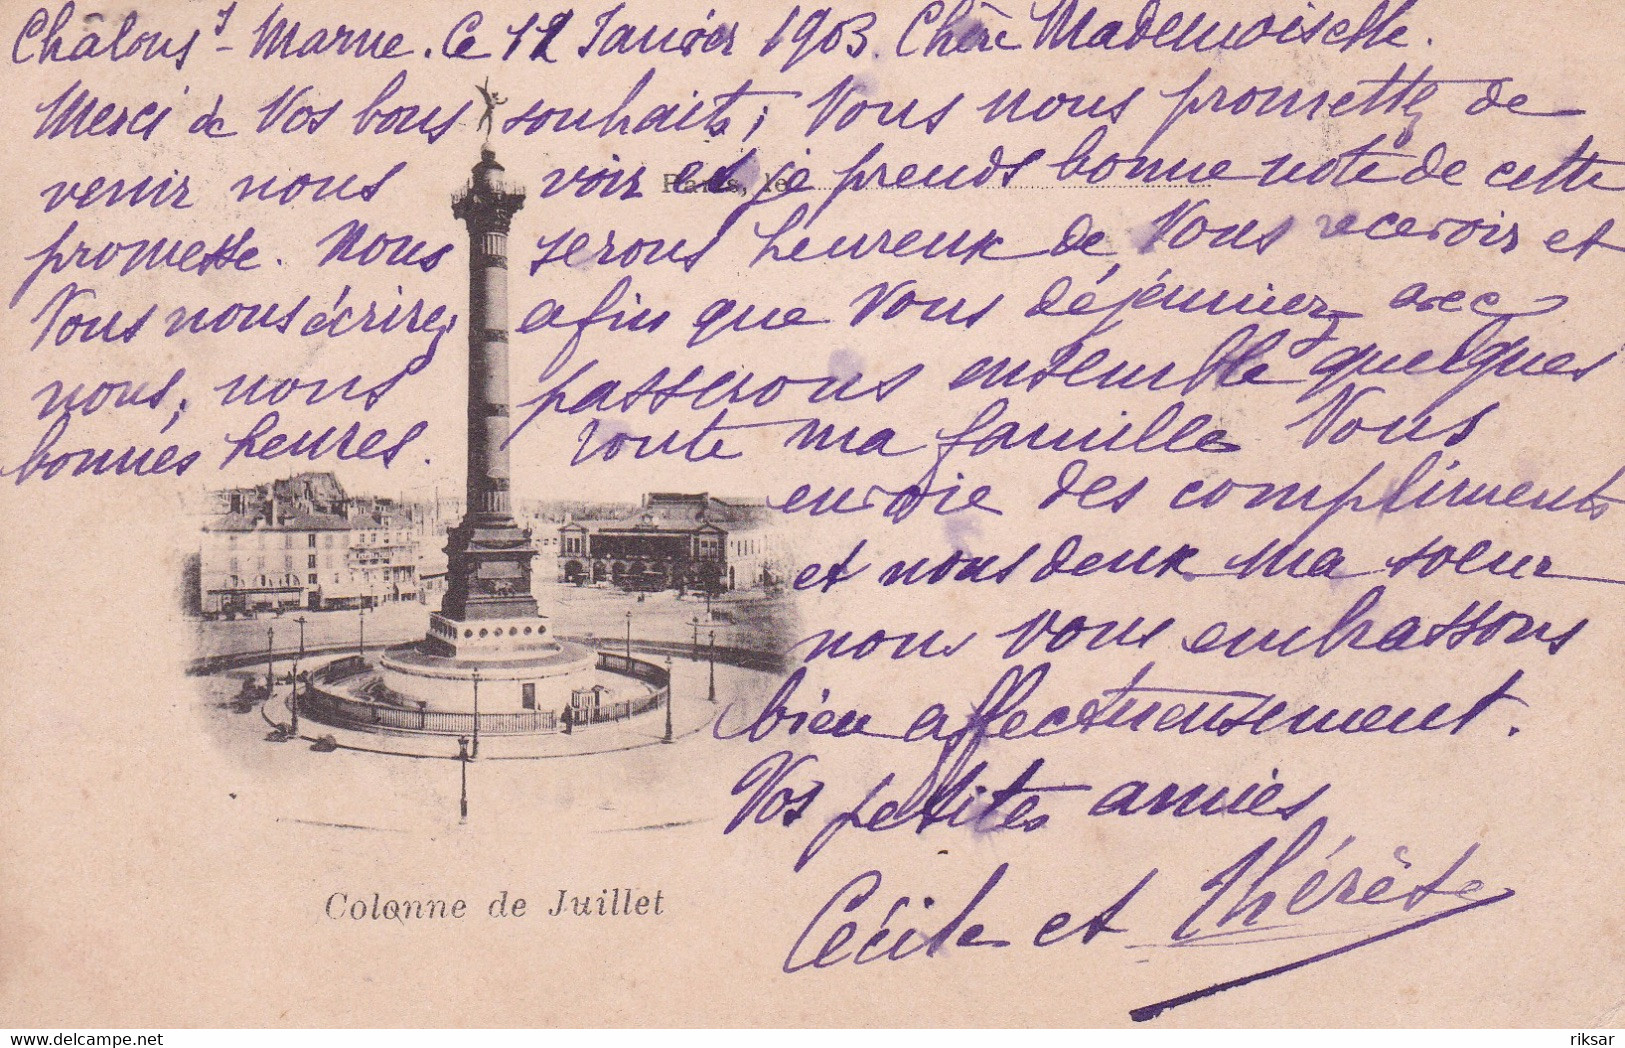 Châlons s - Marne. Ce 12 Janvier 1903. Chère Mademoiselle.
Merci de Vos bons souhaits; Vous nous promettez de
venir nous voir et je prends bonne note de cette
Paris, le
promesse. Nous serons heureux de Vous recevoir et
Vous nous écrirez afin que Vous déjeuniez avec
nous; nous passerons ensemble quelques
bonnes heures. Toute ma famille Vous
envoie des compliments
et nous deux ma soeur
nous vous embrassons
bien affectueusement.
Vos petites amies
Cécile et Thérèse
Colonne de Juillet
https://www.delcampe.net
riksar